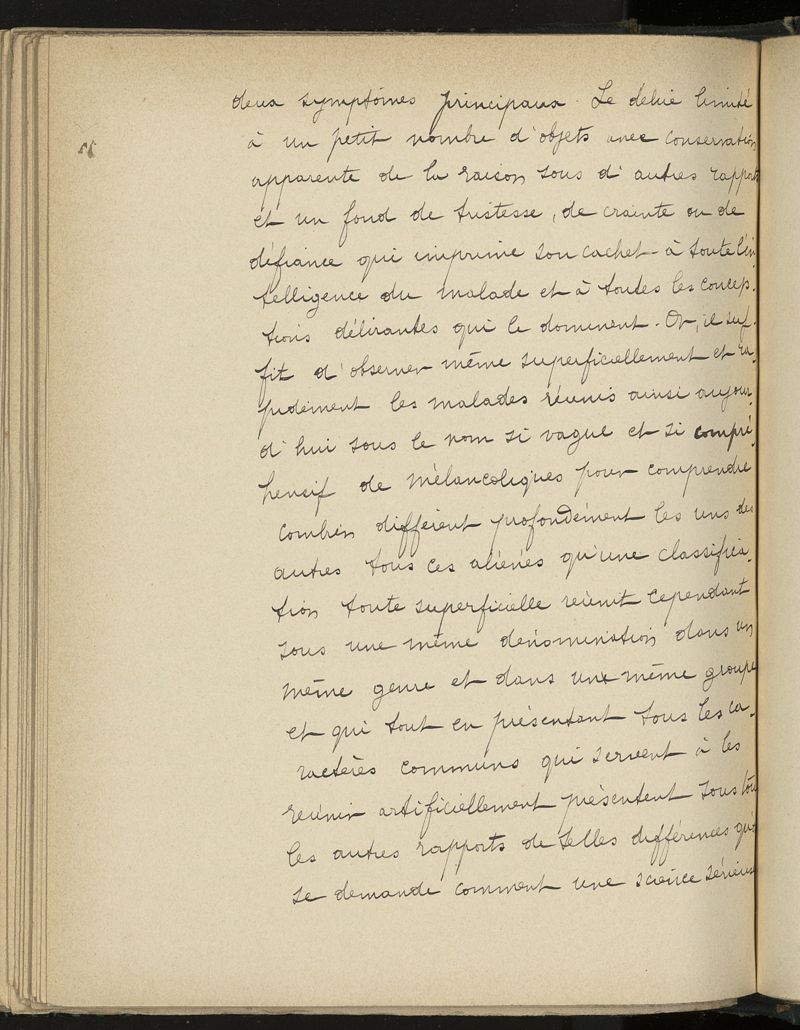 deux symptômes principaux. Le délire limité
à un petit nombre d'objets avec conservation
apparente de la raison sous d'autres rapports
et un fond de tristesse, de crainte ou de
défiance qui imprime son cachet à toute l'in
telligence du malade et à toutes les concep.
tions délirantes qui le dominent. Or, il suf.
fit d'observer même superficiellement et ra.
pidement les malades réunis ainsi aujour.
d'hui sous le nom si vague et si compré.
hensif de mélancoliques pour comprendre
combien diffèrent profondément les uns des
autres tous ces aliénés qu'une classifica.
tion toute superficielle réunit cependant
sous une même dénomination dans un
même genre et dans un même groupe
et qui tout en présentant tous les ca.
ractères communs qui servent à les
réunir artificiellement présentent sous tous
les autres rapports de telles différences qu'on
se demande comment une science sérieuse